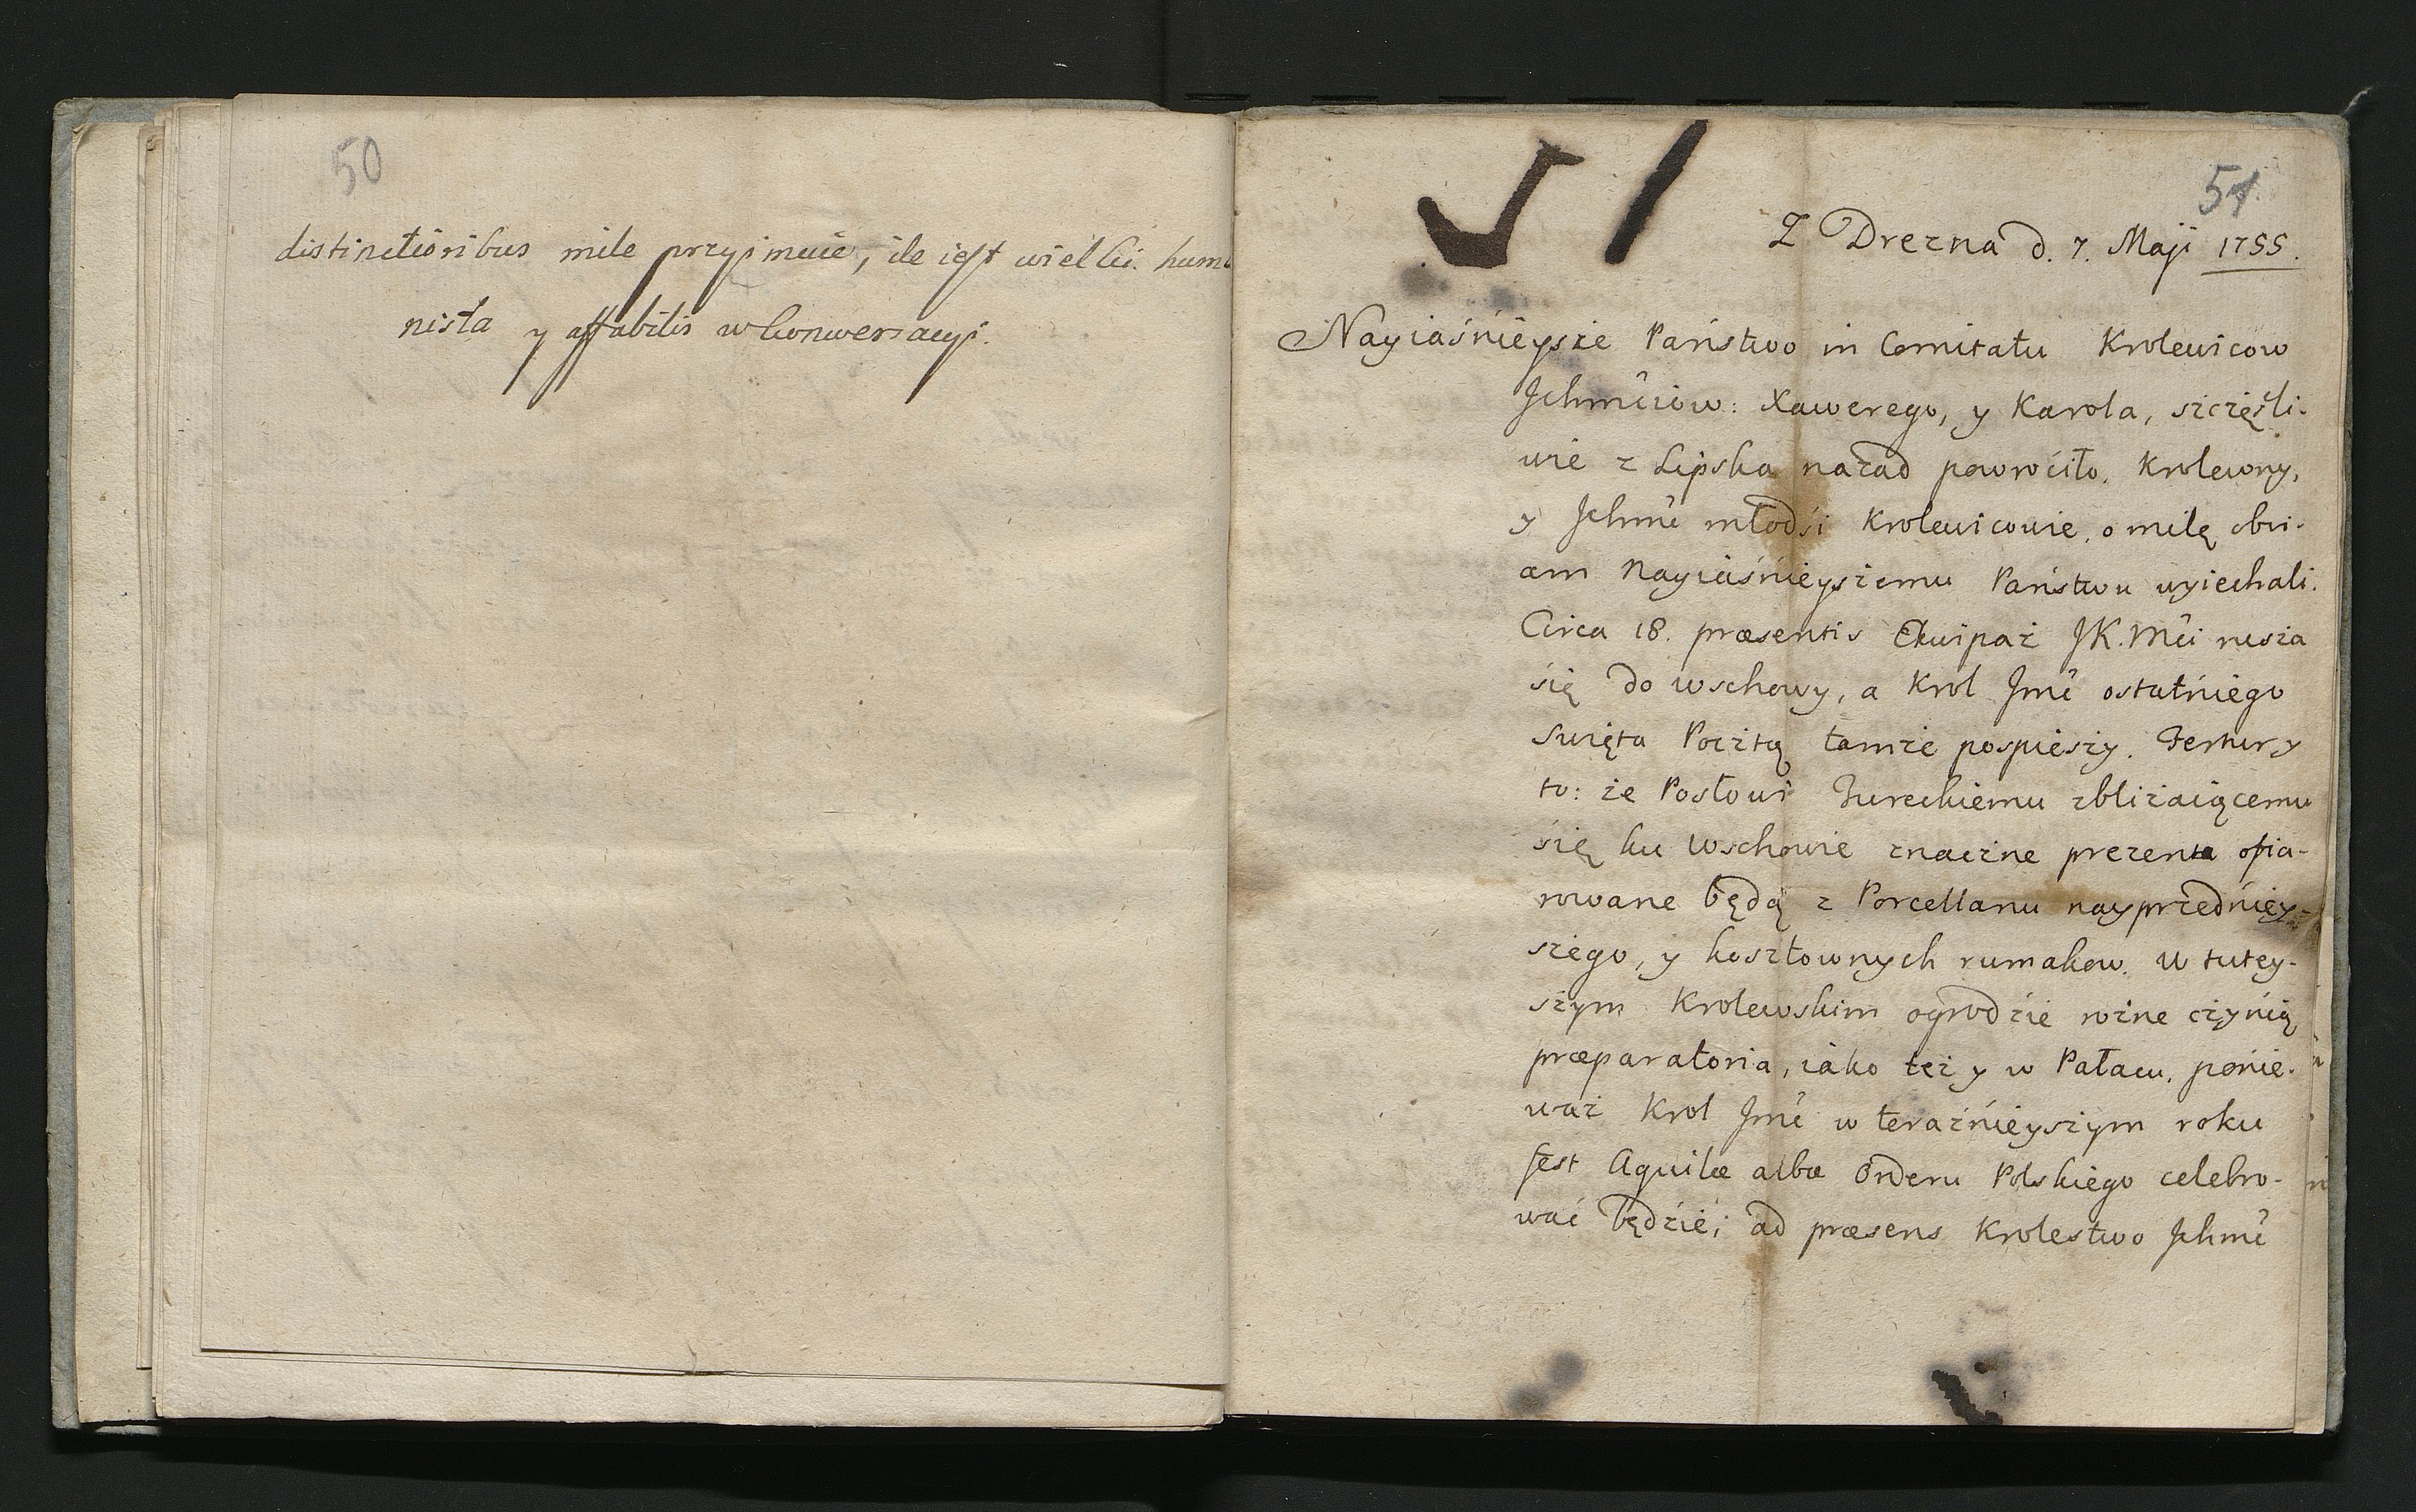 50
distinctioribus mile przyimuie, ile iest wielki. huma
nista y affabilis w konwersacyi.
51
Z Drezna d. 7. Maji 1755.
Nayiaśnieysze Państwo in Comitatu Krolewicow
Jchmciow: Xawerego, y Karola, szczęśli-
wie z Lipska nazad powrociło. Krolewny,
y Jchmć młodsi Krolewicowie, o milę obvi-
am Nayiaśnieyszemu Państwu wyiechali.
Circa 18. præsentis Ekwipaż JK.Mći rusza
się do Wschowy, a Krol Jmć ostatniego
Swięta Pocztą tamże pospieszy. Fertur y
to: że Posłowi Tureckiemu zbliżaiącemu
się ku Wschowie znaczne prezenta ofia-
rowane będą z Porcellanu nayprzedniey-
szego, y kosztownych rumakow. W tutey-
szym Krolewskim ogrodzie rożne czynią
præparatoria, iako też y w Pałacu, ponie-
waż Krol Jmć w teraźnieyszym roku
fest Aquilæ albæ Orderu Polskiego celebro-
wać będzie; ad præsens Krolestwo Jchmć